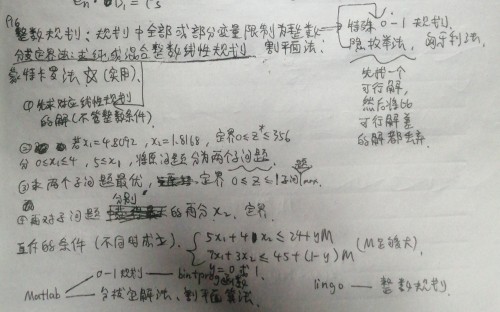 整数规划：规划中全部或部分变量限制为整数 特殊 0-1 规划
分支定界法：求纯或混合整数线性规划 割平面法： 隐枚举法，匈牙利法
蒙特卡罗法 (实用)
先找一个
可行解，
然后将比
可行解差
的解都丢弃
①先求对应线性规划
的解(不管整数条件)
② 若x₁=4.8092，x₂=1.8168，定界0≤z*≤356
分 0≤x₁≤4，5≤x₁，将原问题分为两个子问题
③求两个子问题最优，定界 0≤z≤{子问题}max
④再对子问题 分别 的再分 x₂，定界
互斥的条件(不同时成立) { 5x₁+4x₂≤24+yM
7x₁+3x₂≤45+(1-y)M (M足够大)
y=0或1
Matlab 0-1规划 bintprog函数
分支定界法、割平面算法 lingo — 整数规划